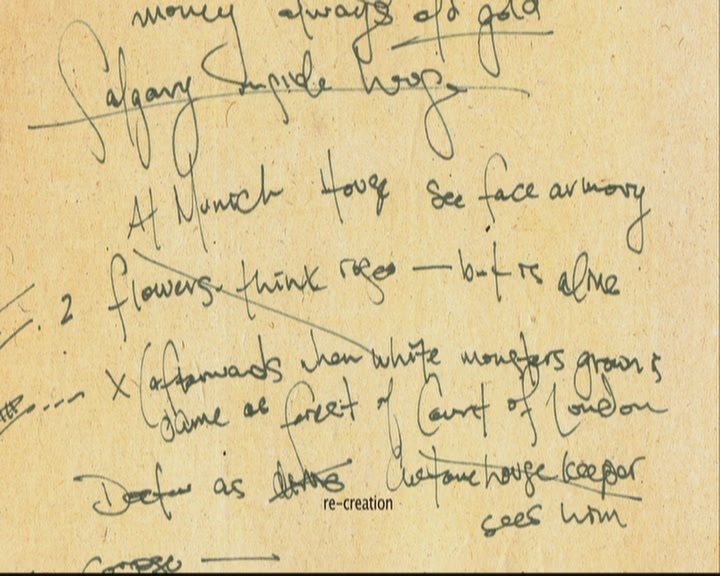 money always old gold
At Munich House see face among
2 flowers think rose — but is alone
X (afterwards when white monsters grown is
same as forest of Count of London
Doctor as
house keeper
sees him
re-creation
corpse —